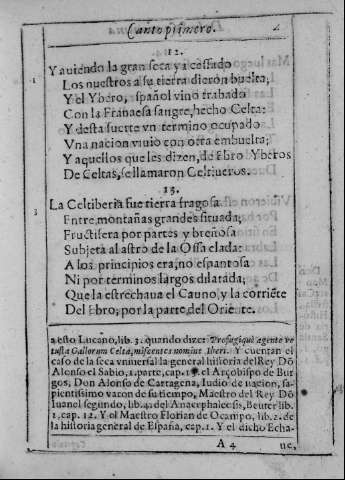 Canto primero. 4
12.
Y auiendo la gran seca ya cessado
Los nuestros a su tierra dieron buelta,
Y el Ybero, español vino trabado
Con la Franaesa sangre, hecho Celta:
Y desta suerte vn termino ocupado
Vna nacion viuio con otra embuelta;
Y aquellos que les dizen, de Ebro Yberos
De Celtas, se llamaron Celtiueros.
13.
La Celtiberia fue tierra fragosa
Entre montañas grandes situada;
Fructifera por partes y breñosa
Subjeta al astro de la Ossa elada:
A los principios era, no espantosa
Ni por terminos largos dilatada;
Que la estrechaua el Cauno, y la corriẽte
Del Ebro; por la parte del Oriente.
a esto Lucano, lib. 3. quando dize: Profugiquè agente ve
tusta Gallorum Celtæ, miscentes nomius Iberi. Y cuentan el
caso de la seca vniuersal la general historia del Rey Dõ
Alonso el Sabio, 1. parte, cap. el Arçobispo de Bur
gos, Don Alonso de Cartagena, Iudio de nacion, sa-
pientissimo varon de su tiempo, Maestro del Rey Dõ
Iuan el segundo, lib. 4. del Anacephaleosis, Beuter lib.
1. cap. 12. Y el Maestro Florian de Ocampo, lib. 2. de
la historia general de España, cap. 1. Y el dicho Echa-
A 4 ue,